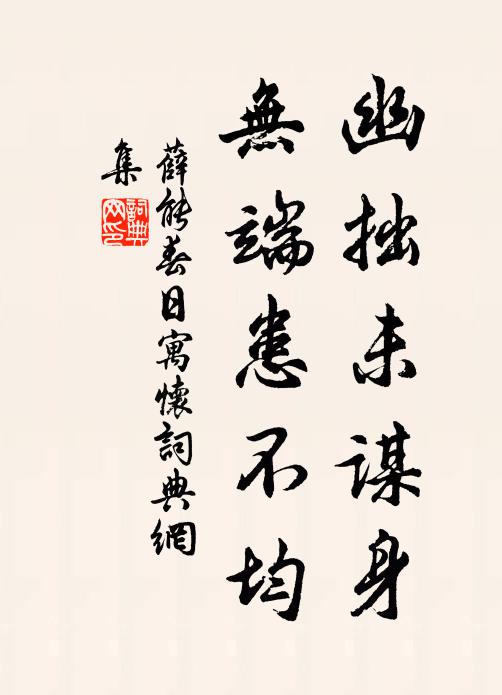 幽拙未謀身
無端患不均
薛能春日寓懷詞典網
集
詞典
网印